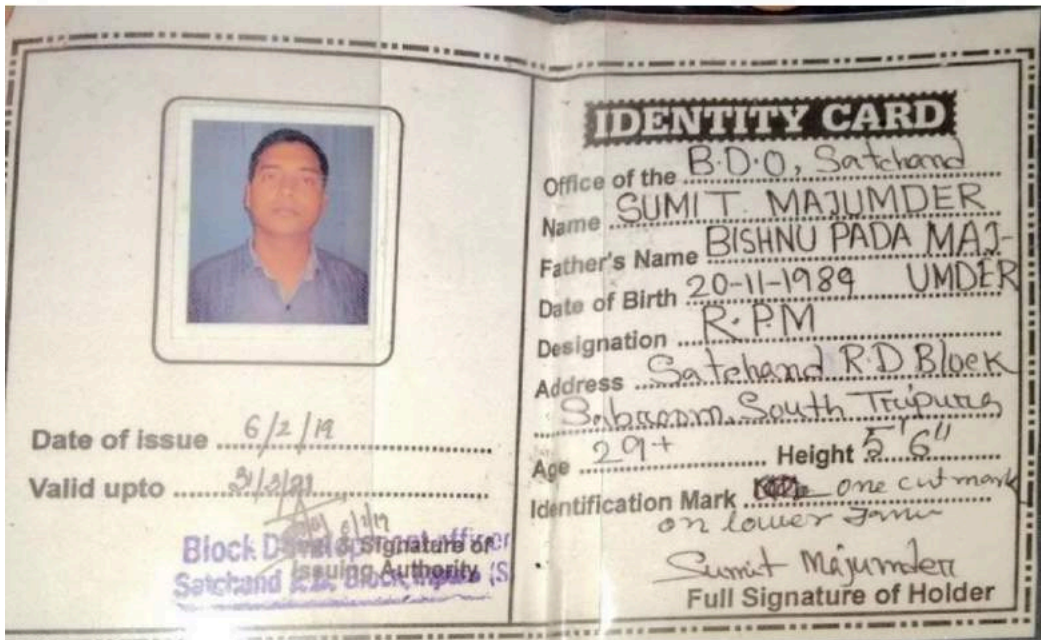 Date of issue 6/2/19
Valid upto
Block Development officer
Seal & Signature of
Issuing Authority
Satchand R.D. Block
IDENTITY CARD
Office of the B.D.O, Satchand
Name SUMIT. MAJUMDER
Father's Name BISHNU PADA MAJ-
UMDER
Date of Birth 20-11-1989
Designation R.P.M
Address Satchand R.D Block
Sabroom South Tripura
Age 29+ Height 5'6"
Identification Mark one cut mark
on lower
Sumit Majumder
Full Signature of Holder